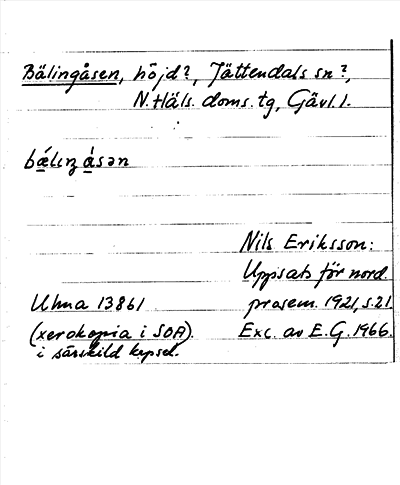 Bälingåsen, höjd?, Jättendals sn?,
N. Häls. doms. tg, Gävl. l.
bǽlɩŋ ǻsən
Nils Eriksson:
Uppsats för nord.
Ulma 13861 prosem. 1921, s. 21.
(xerokopia i SOA). Exc. av E. G. 1966.
i särskild kapsel.